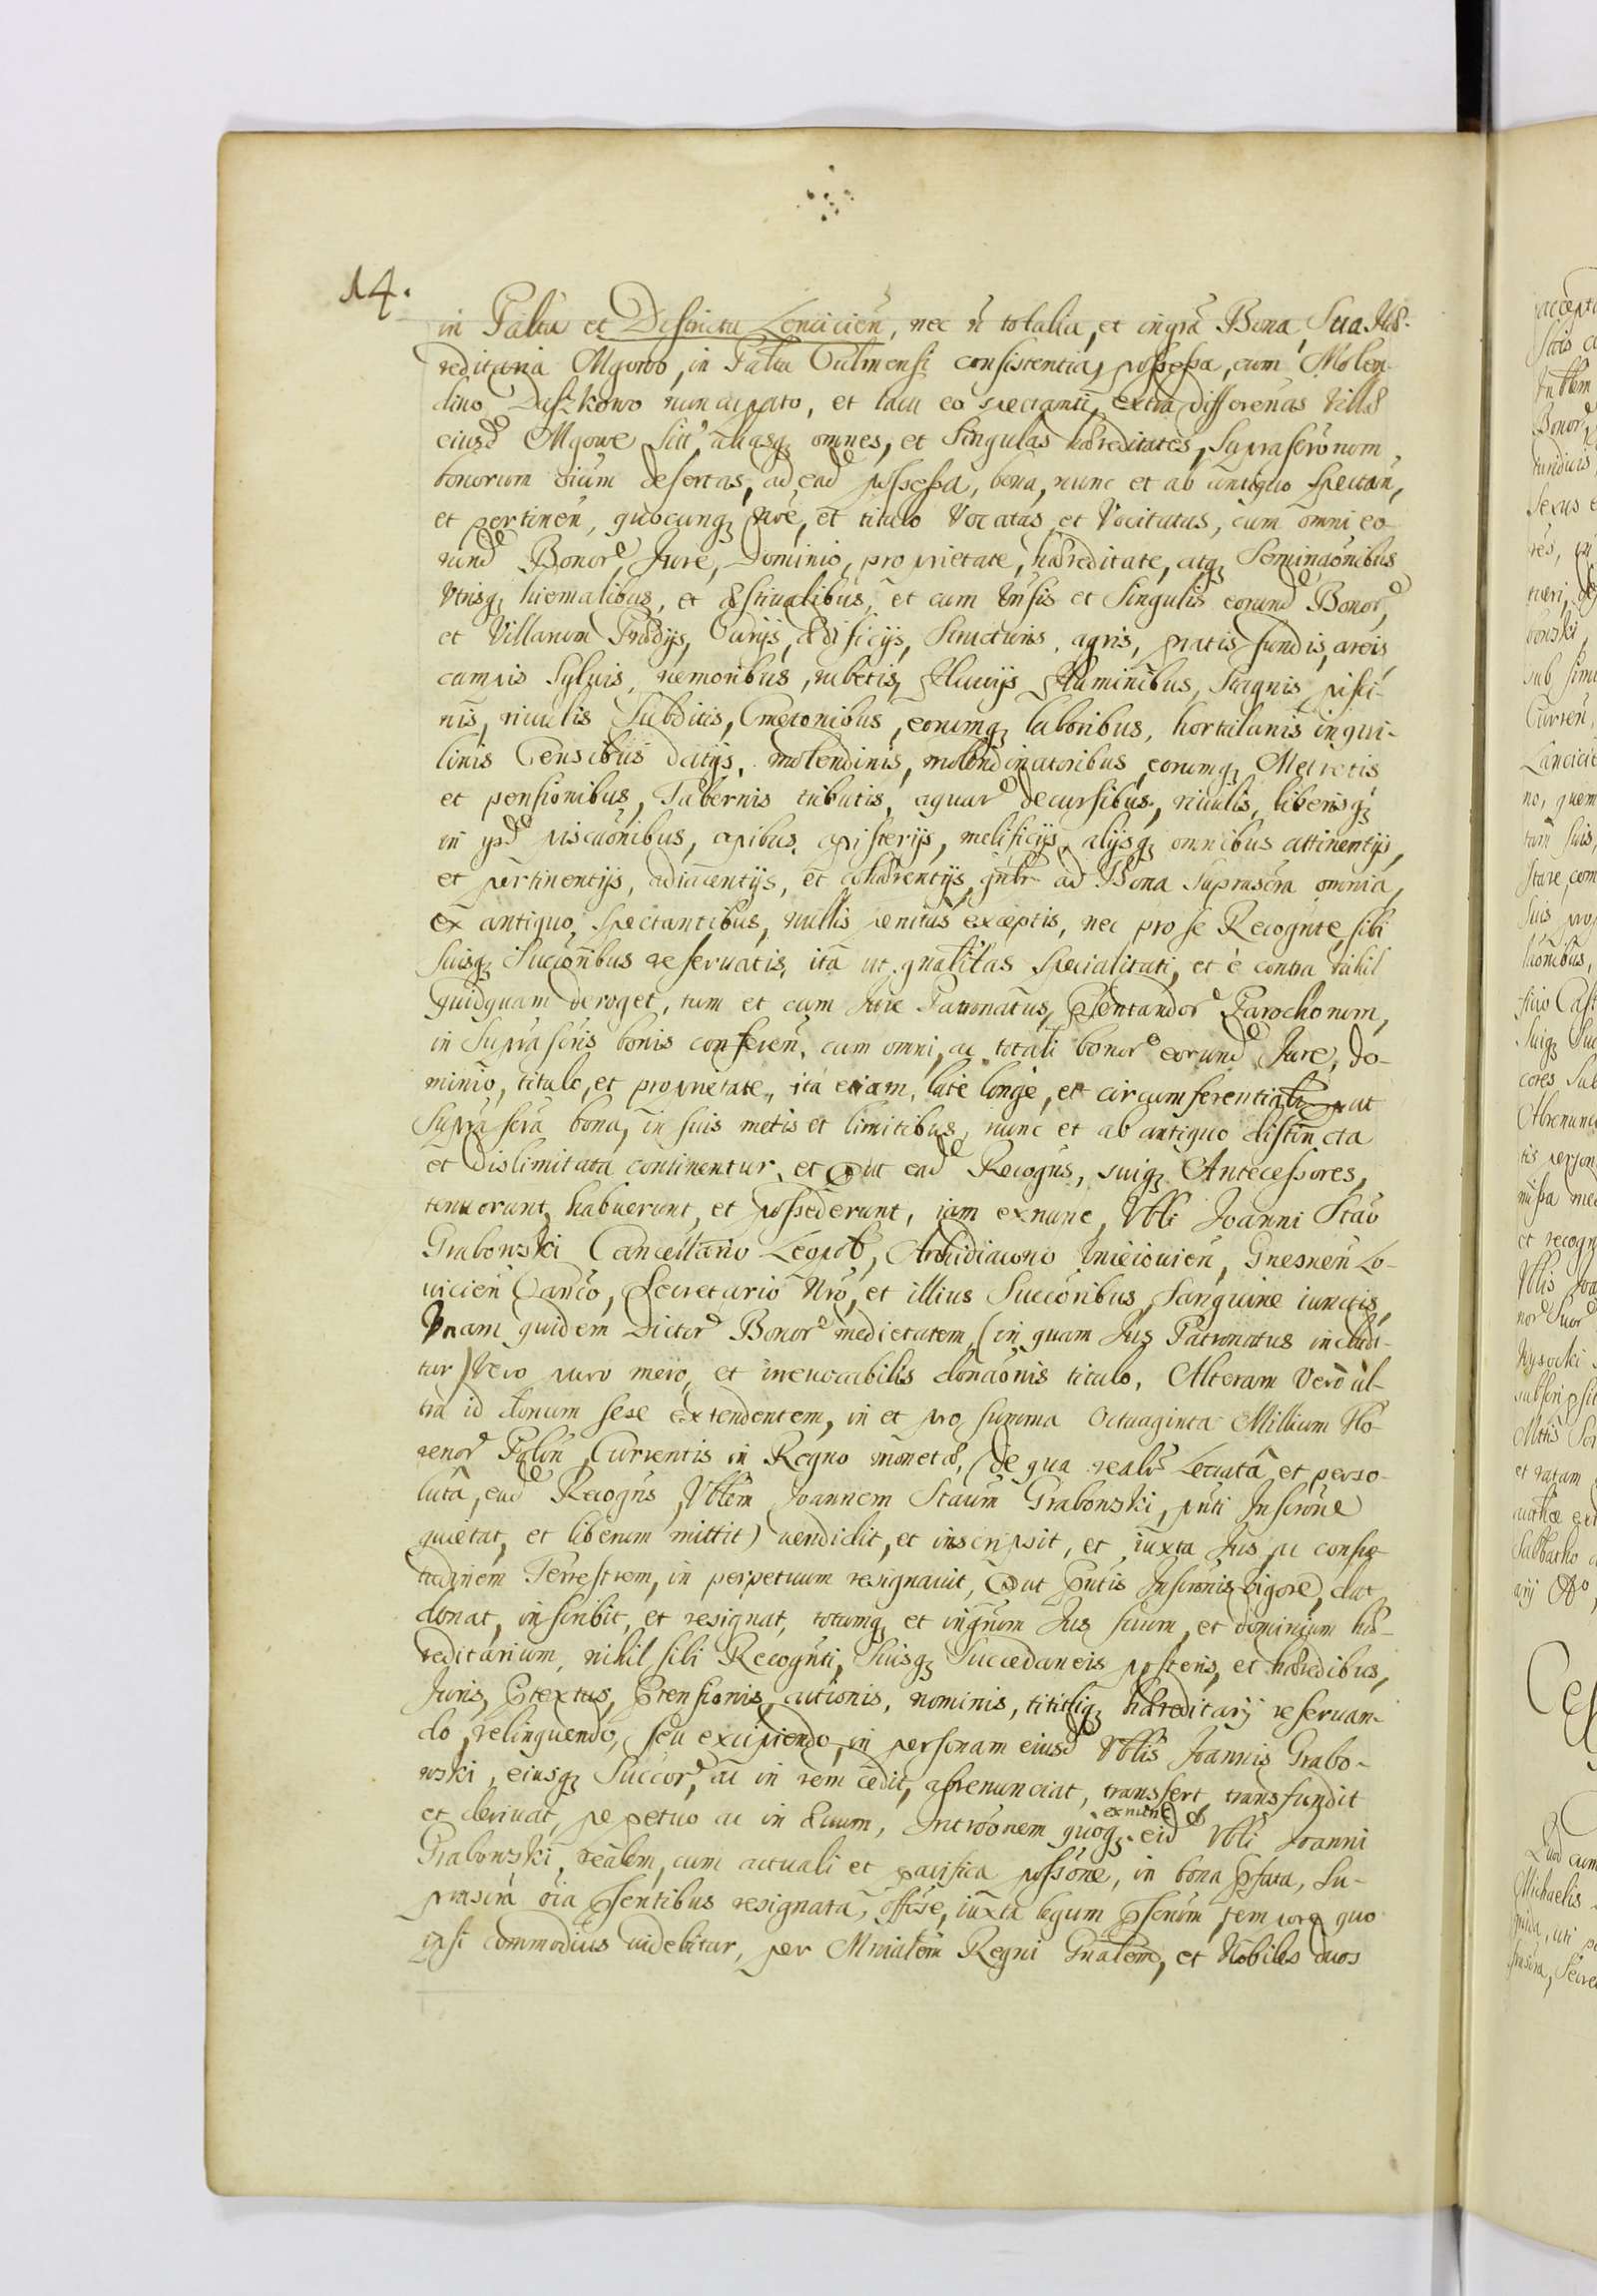 14.
in Paltu et Districtu Lencicien̄, nec n̄ totalia, et ingra Bona, Sua Hæ-
reditaria Mgowo, in Paltu Culmensi consistentia, possessa, cum Molen-
dino Duszkowo nuncupato, et lacu eo spectanti, extra differen̄as Villæ
eiusd Mgowe Sitt, aliasq; omnes, et Singulas hæreditates, Suprascronom,
bonorum oīum desertas, ad ead possessa, bona, nunc et ab antiquo spectan̄,
et pertinen̄, quocunq; Iure, et titulo Vocatas et Vocitatas, cum omni eo-
rund Bonor Jure, Dominio, proprietate, hæreditate, atq; Seminaōnibus
Vtrisq; hiemalibus, et Æstiualibus, et cum Vnsis et Singulis eorund Bonor,
et Villarum Prædijs, Curijs, Ædificijs, Structuris, agris, pratis fundis, areis
campis Syluis, nemoribus, rubetis, fluuijs fluminibus, Stagnis pisci-
nis, riuulis Subditis, Cmetonibus, eorumq; laboribus, hortulanis inqui-
linis Censibus datijs, molendinis, molendinatoribus, eorumq; Metretis
et pensionibus, Tabernis tributis, aquar decursibus, riuulis, liberisq;
in ysd piscaōnibus, apibus, apisterijs, melificijs, alijsq; omnibus attinentijs,
et pertinentijs, adiacentijs, et cohærentijs, gnlr ad Bona Suprascra omnia,
ex antiquo, spectantibus, nullis penitus exceptis, nec pro se Recognte, sibi
suisq; Succōribus reseruatis, ita ut gnalitas specialitati, et è contra nihil
quidquam deroget, tum et cum Jure Patronatus, Psentandor Parochorum,
in Suprascris bonis conferen̄, cum omni, ac totali bonor eorund Jure, do-
minio, titulo, et proprietate, ita etiam, late longe, et circumferentialr put
Suprascra bona, in suis metis et limitibus, nunc et ab antiquo distincta
et dislimitata continentur, et put ead Recogns, suiq; Antecessores,
tenuerunt, habuerunt, et possederunt, iam exnunc, Vbli Joanni Stao
Grabowski Cancellario Leopol, Archidiacono Unieiouien̄, Gnesnen̄ Lo-
uicien̄ Canco, Secretario Nro, et illius Succōribus, Sanguine iunctis,
Vnam quidem Dictor Bonor medietatem, (in quam Jus Patronatus includi-
tur) Vero puro mero, et irreuocabilis donaōnis titulo, Alteram Vero ul-
tra id donum sese extendentem, in et pro summa Octuaginta Millium Flo-
renor Polon̄, Currentis in Regno monetæ, (de qua realr Leuata et perso-
luta, ead Recogns, Vblem Joannem Staum Grabowski, pnti Inscrone
quietat, et liberum mittit) uendidit, et inscripsit, et iuxta Jus ac consue-
tudinem Terrestrem, in perpetuum resignauit, put pntis Inscronis uigore, dat
donat, inscribit, et resignat, totumq; et ingrum Jus suum, et dominium hæ-
reditarium, nihil sibi Recognti, Suisq; Succedaneis posteris, et hæredibus,
Juris, Ptextus, Ptensionis, actionis, nominis, tituliq; hæreditarij reseruan-
do, relinquendo, seu excipiendo, in personam eiusd Vblis Joannis Grabo-
wski, eiusq; Succor, ac in rem cedit, abrenunciat, transfert transfundit
et deriuat, perpetuo ac in Æuum, Introōnem quoq; exnunc eid Vbli Joanni
Grabowski, realem, cum actuali et pacifica possōne, in bona Pfata, Su-
prascra oīa Psentibus resignata, offise, iuxta legum Pscrūm, tempore quo
ipsi commodius uidebitur, per Mnialem Regni Gnalem, et Nobiles duos